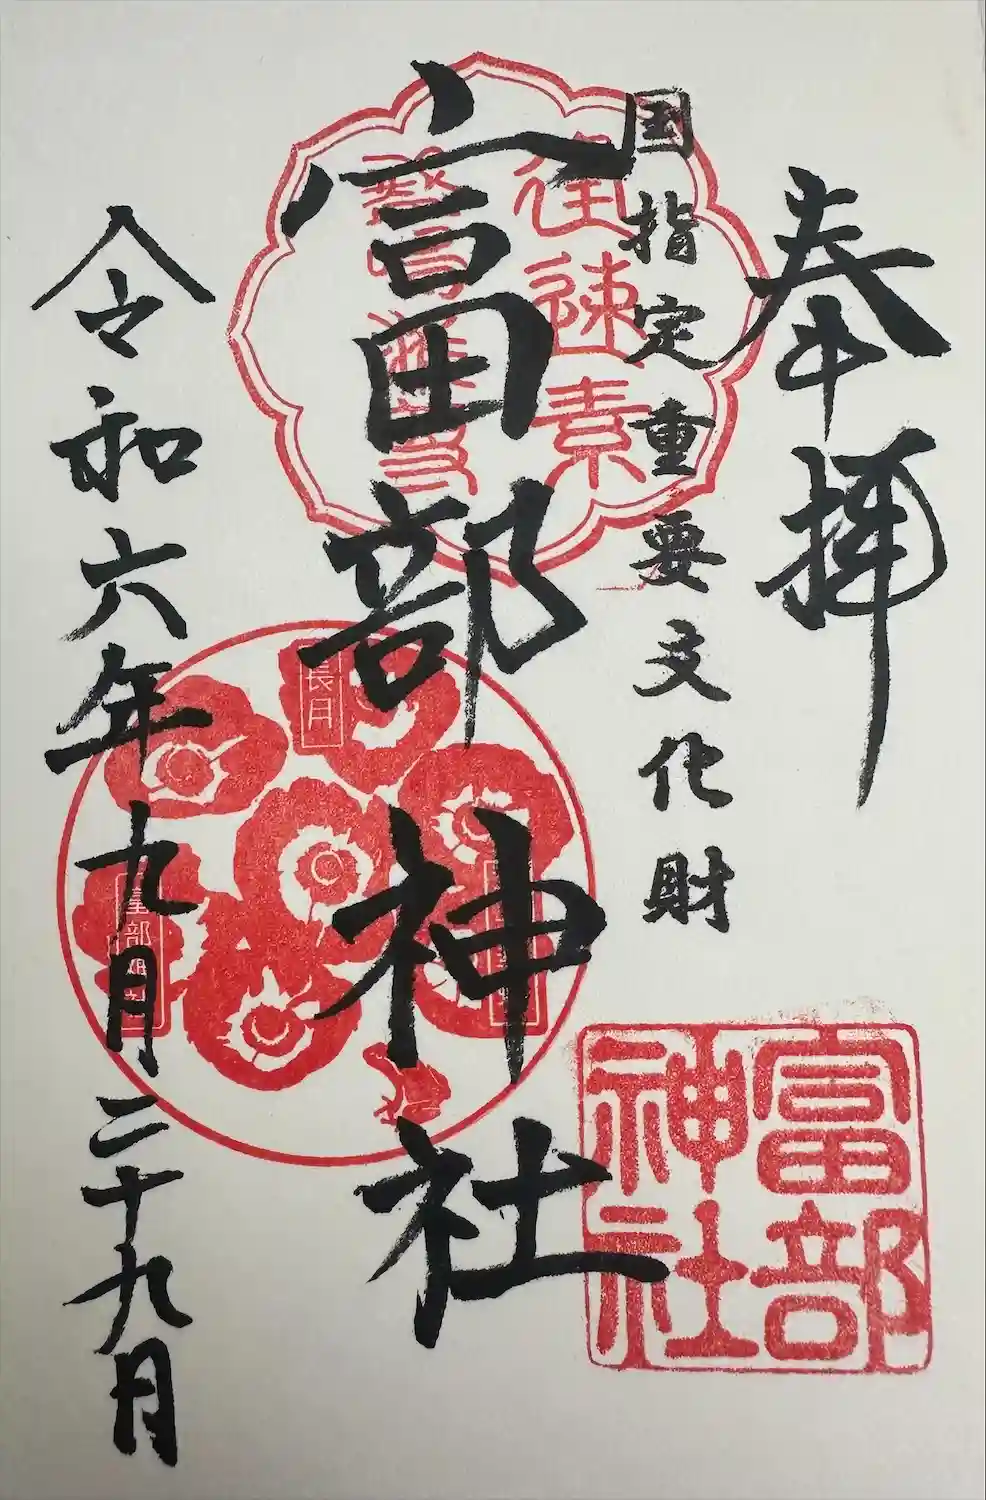 奉拝
国指定重要文化財
富部神社
令和六年九月二十九月
富部
神社
長月
富部神社